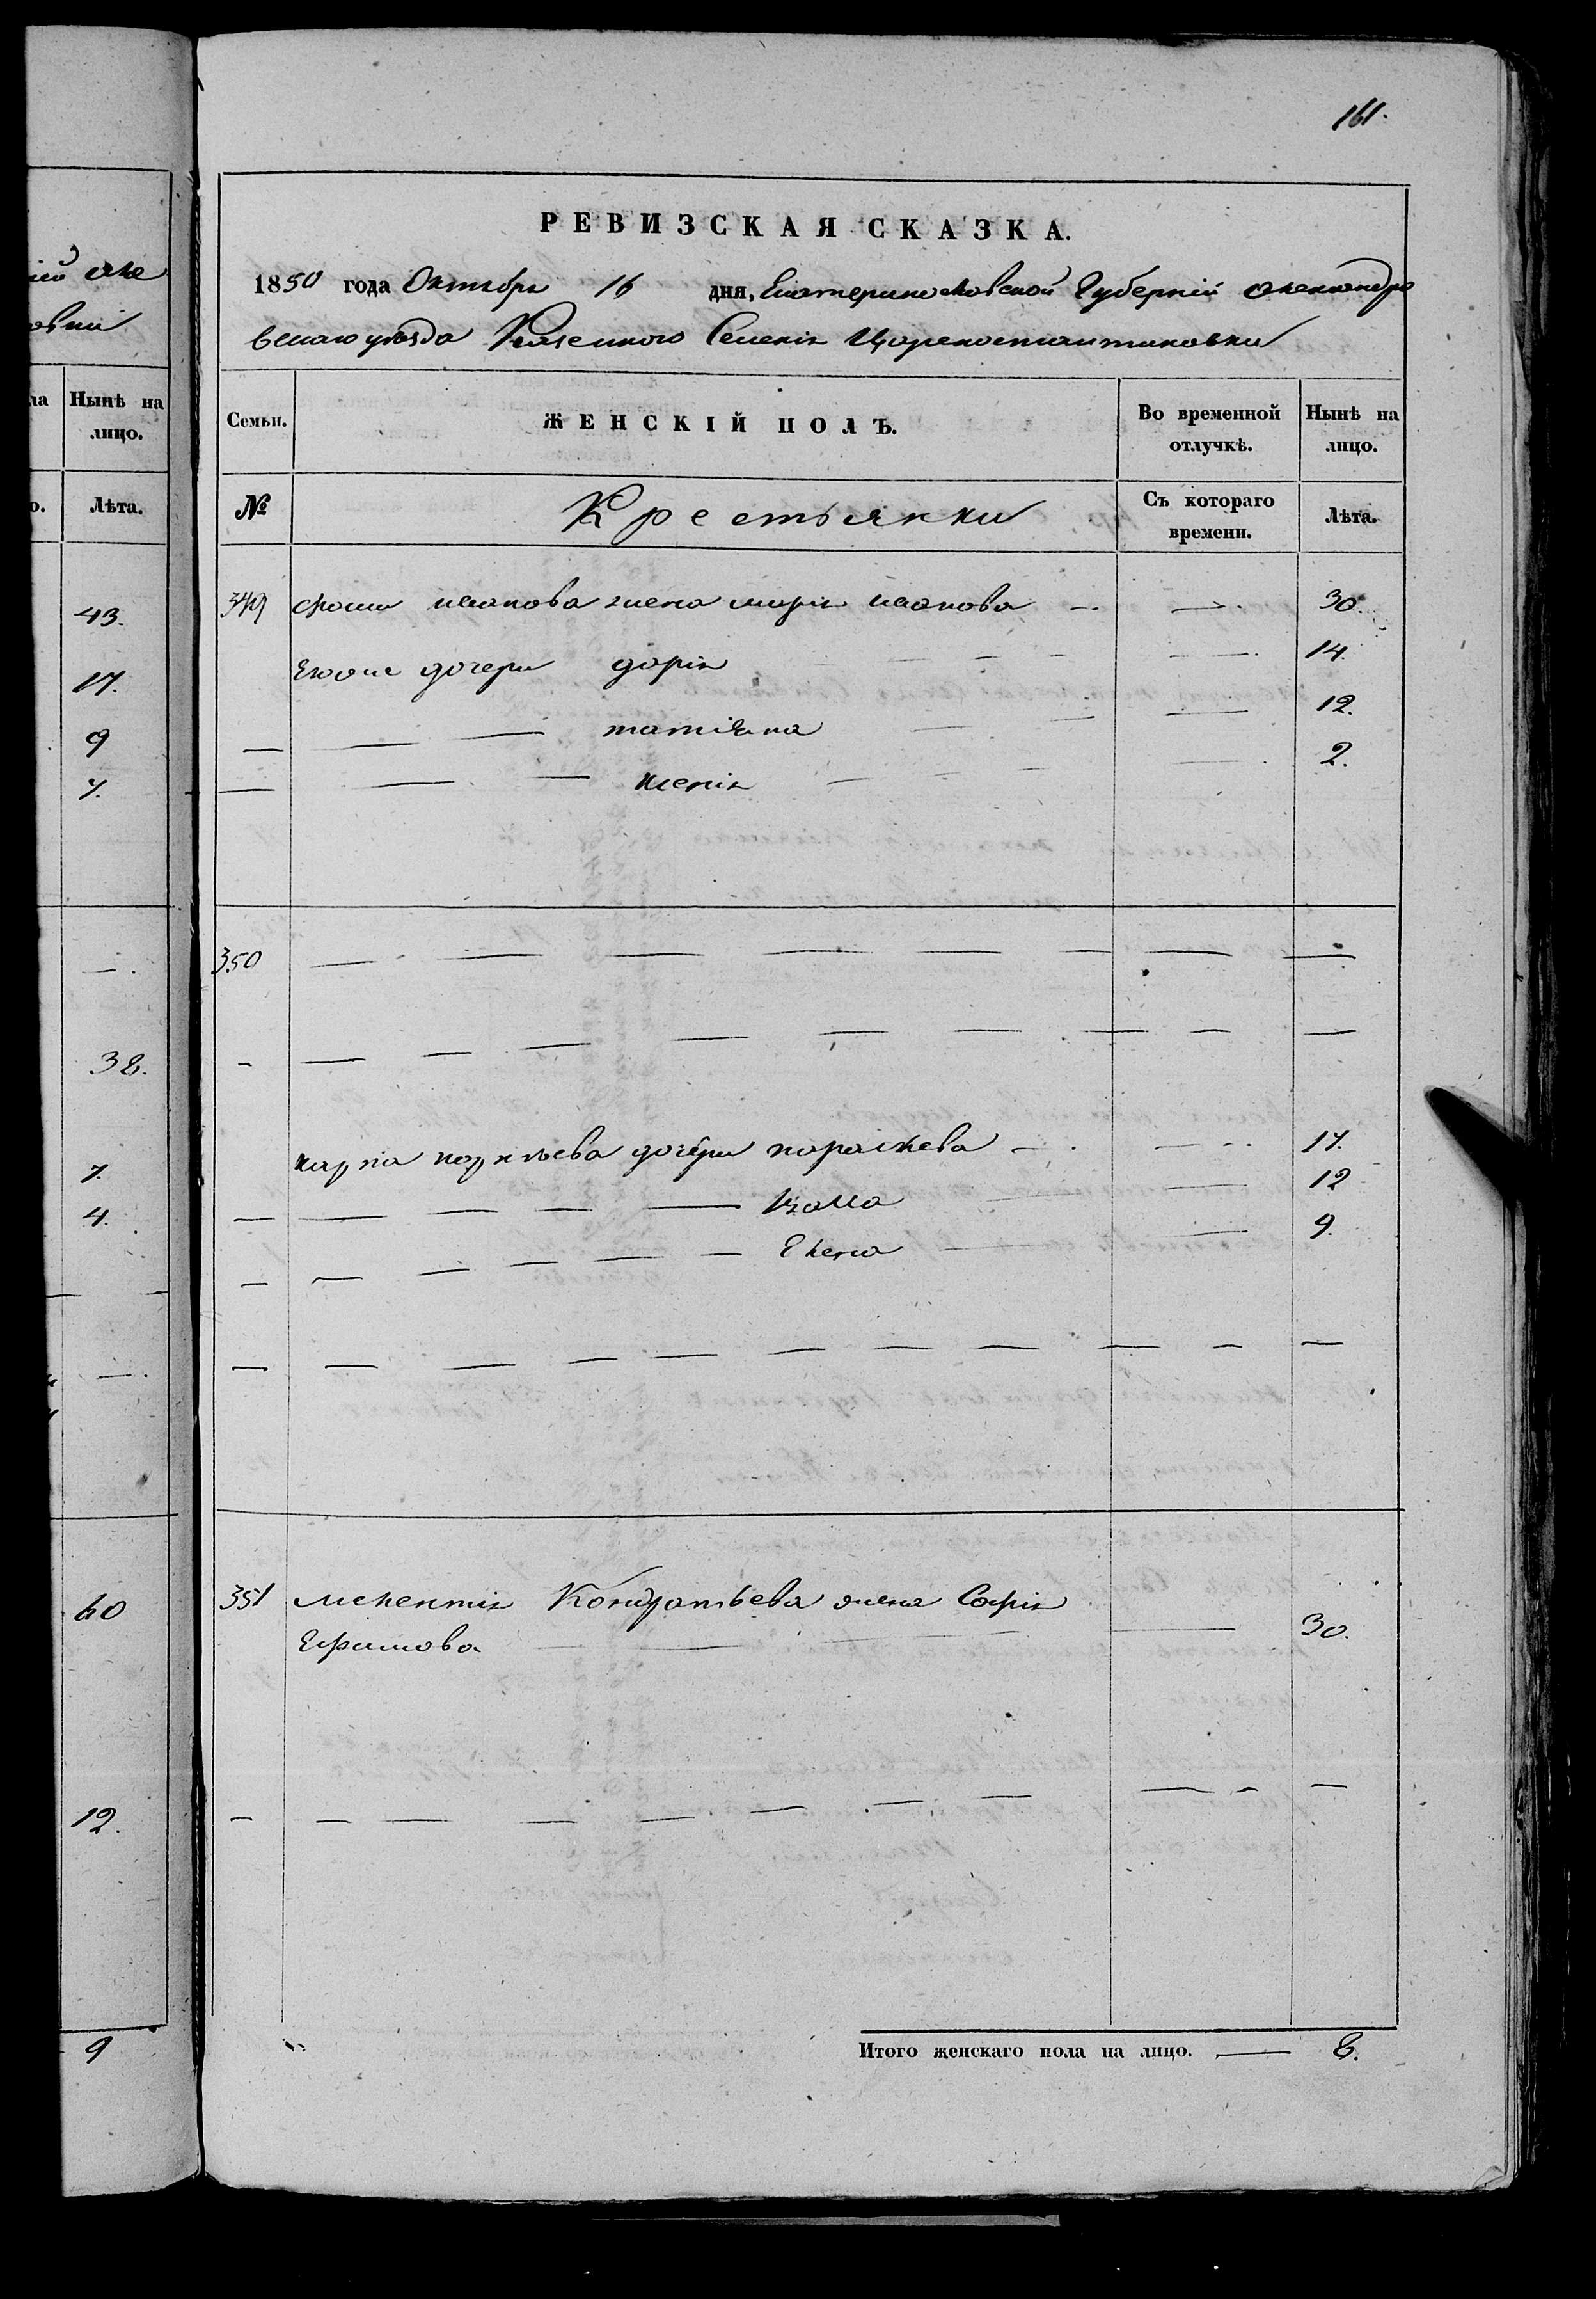 161.
РЕВИЗСКАЯ СКАЗКА.
1850 года Октября 16 дня, Екатеринославской Губерніи Александро
вскаго уѣзда Казеннаго Селенія Цареконстантиновки
Семьи. ЖЕНСКІЙ ПОЛЪ. Во временной отлучкѣ. Нынѣ на лицо.
№ Крестьянки Съ котораго времени. Лѣта.
349 фомы исакова жена марія исакова — — 30.
Екоже дочери дарія — — 14.
— — — татіяна — — 12.
— — — ксенія — — 2.
350 — — — — — — — —
— — — — — — — — —
карпа дочери параскева — — 17.
— — — — — — — 12
— — — — — — Елена — — 9.
— — — — — — — — — —
351 Кондратьева жена Софія
Ефимова — — — — 30.
— — — — — — — — — —
Итого женскаго пола на лицо. — 8.
Нынѣ на
лицо.
Лѣта.
43.
17.
9
7.
—.
38.
7.
4.
—.
60
12.
9